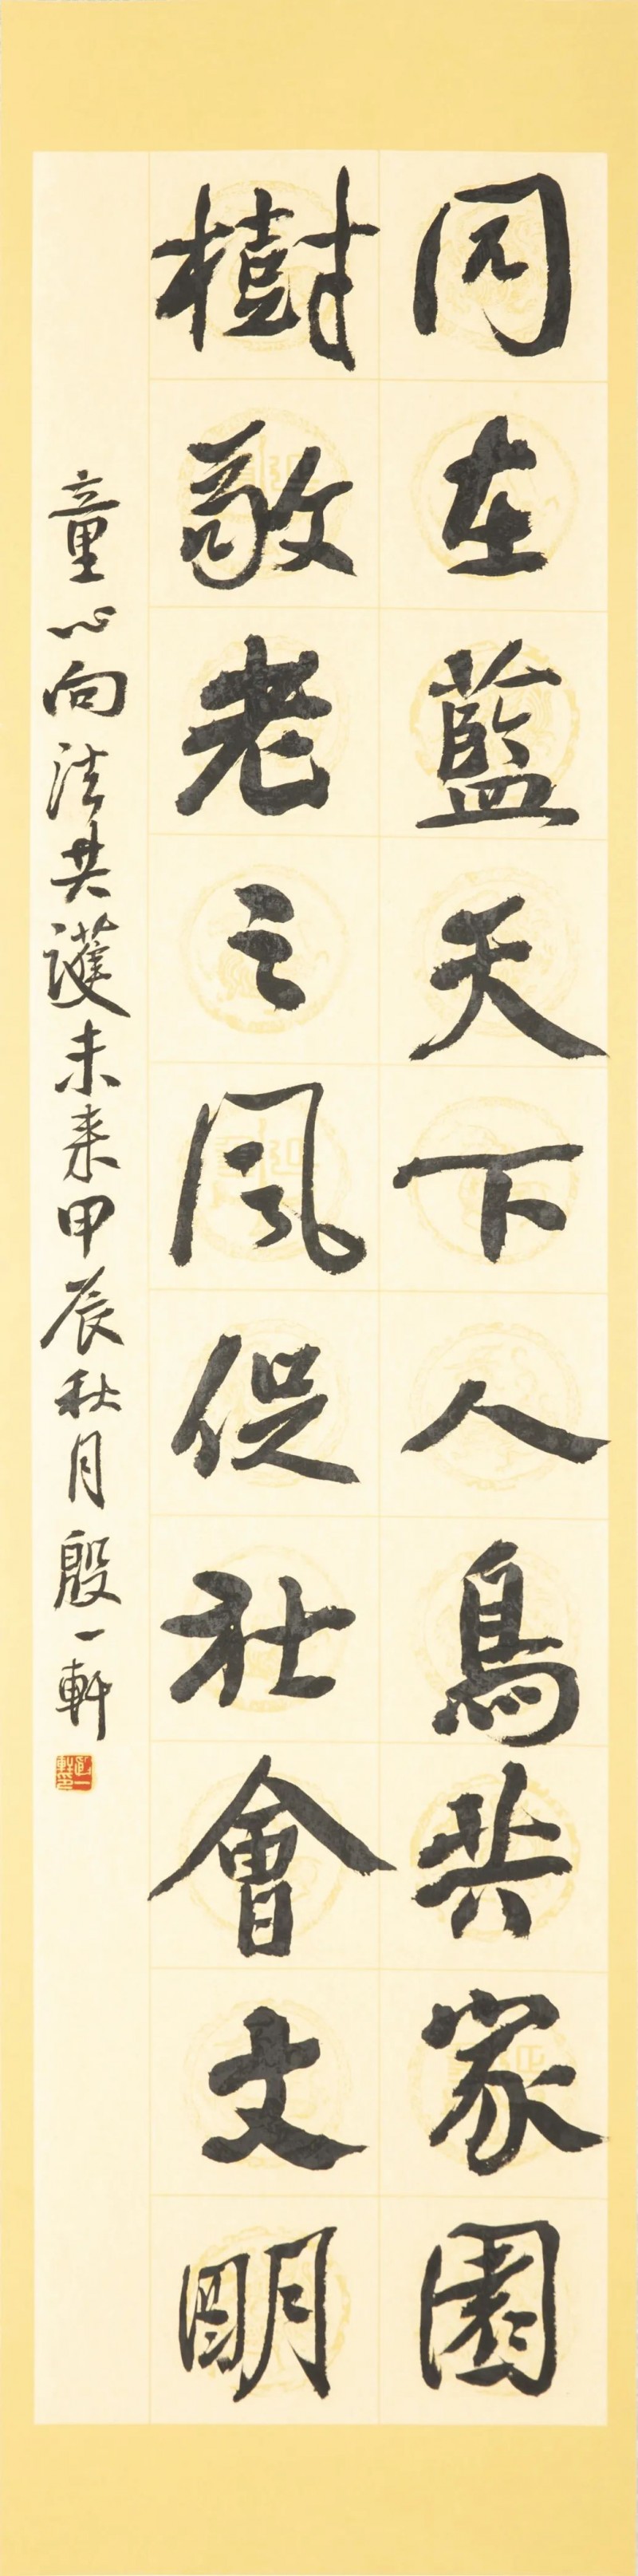 同在藍天下人鳥共家園
樹敬老之風促社會文明
童心向法共護未來甲辰秋月殷一軒